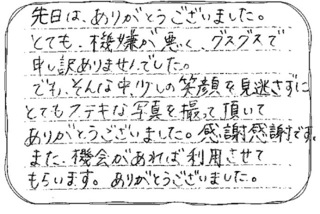 先日は、ありがとうございました。
とても、機嫌が悪く、グスグスで
申し訳ありませんでした。
でも、そんな中少しの笑顔を見逃さずに
とてもステキな写真を撮って頂いて
ありがとうございました。感謝感謝です。
また、機会があれば利用させて
もらいます。ありがとうございました。